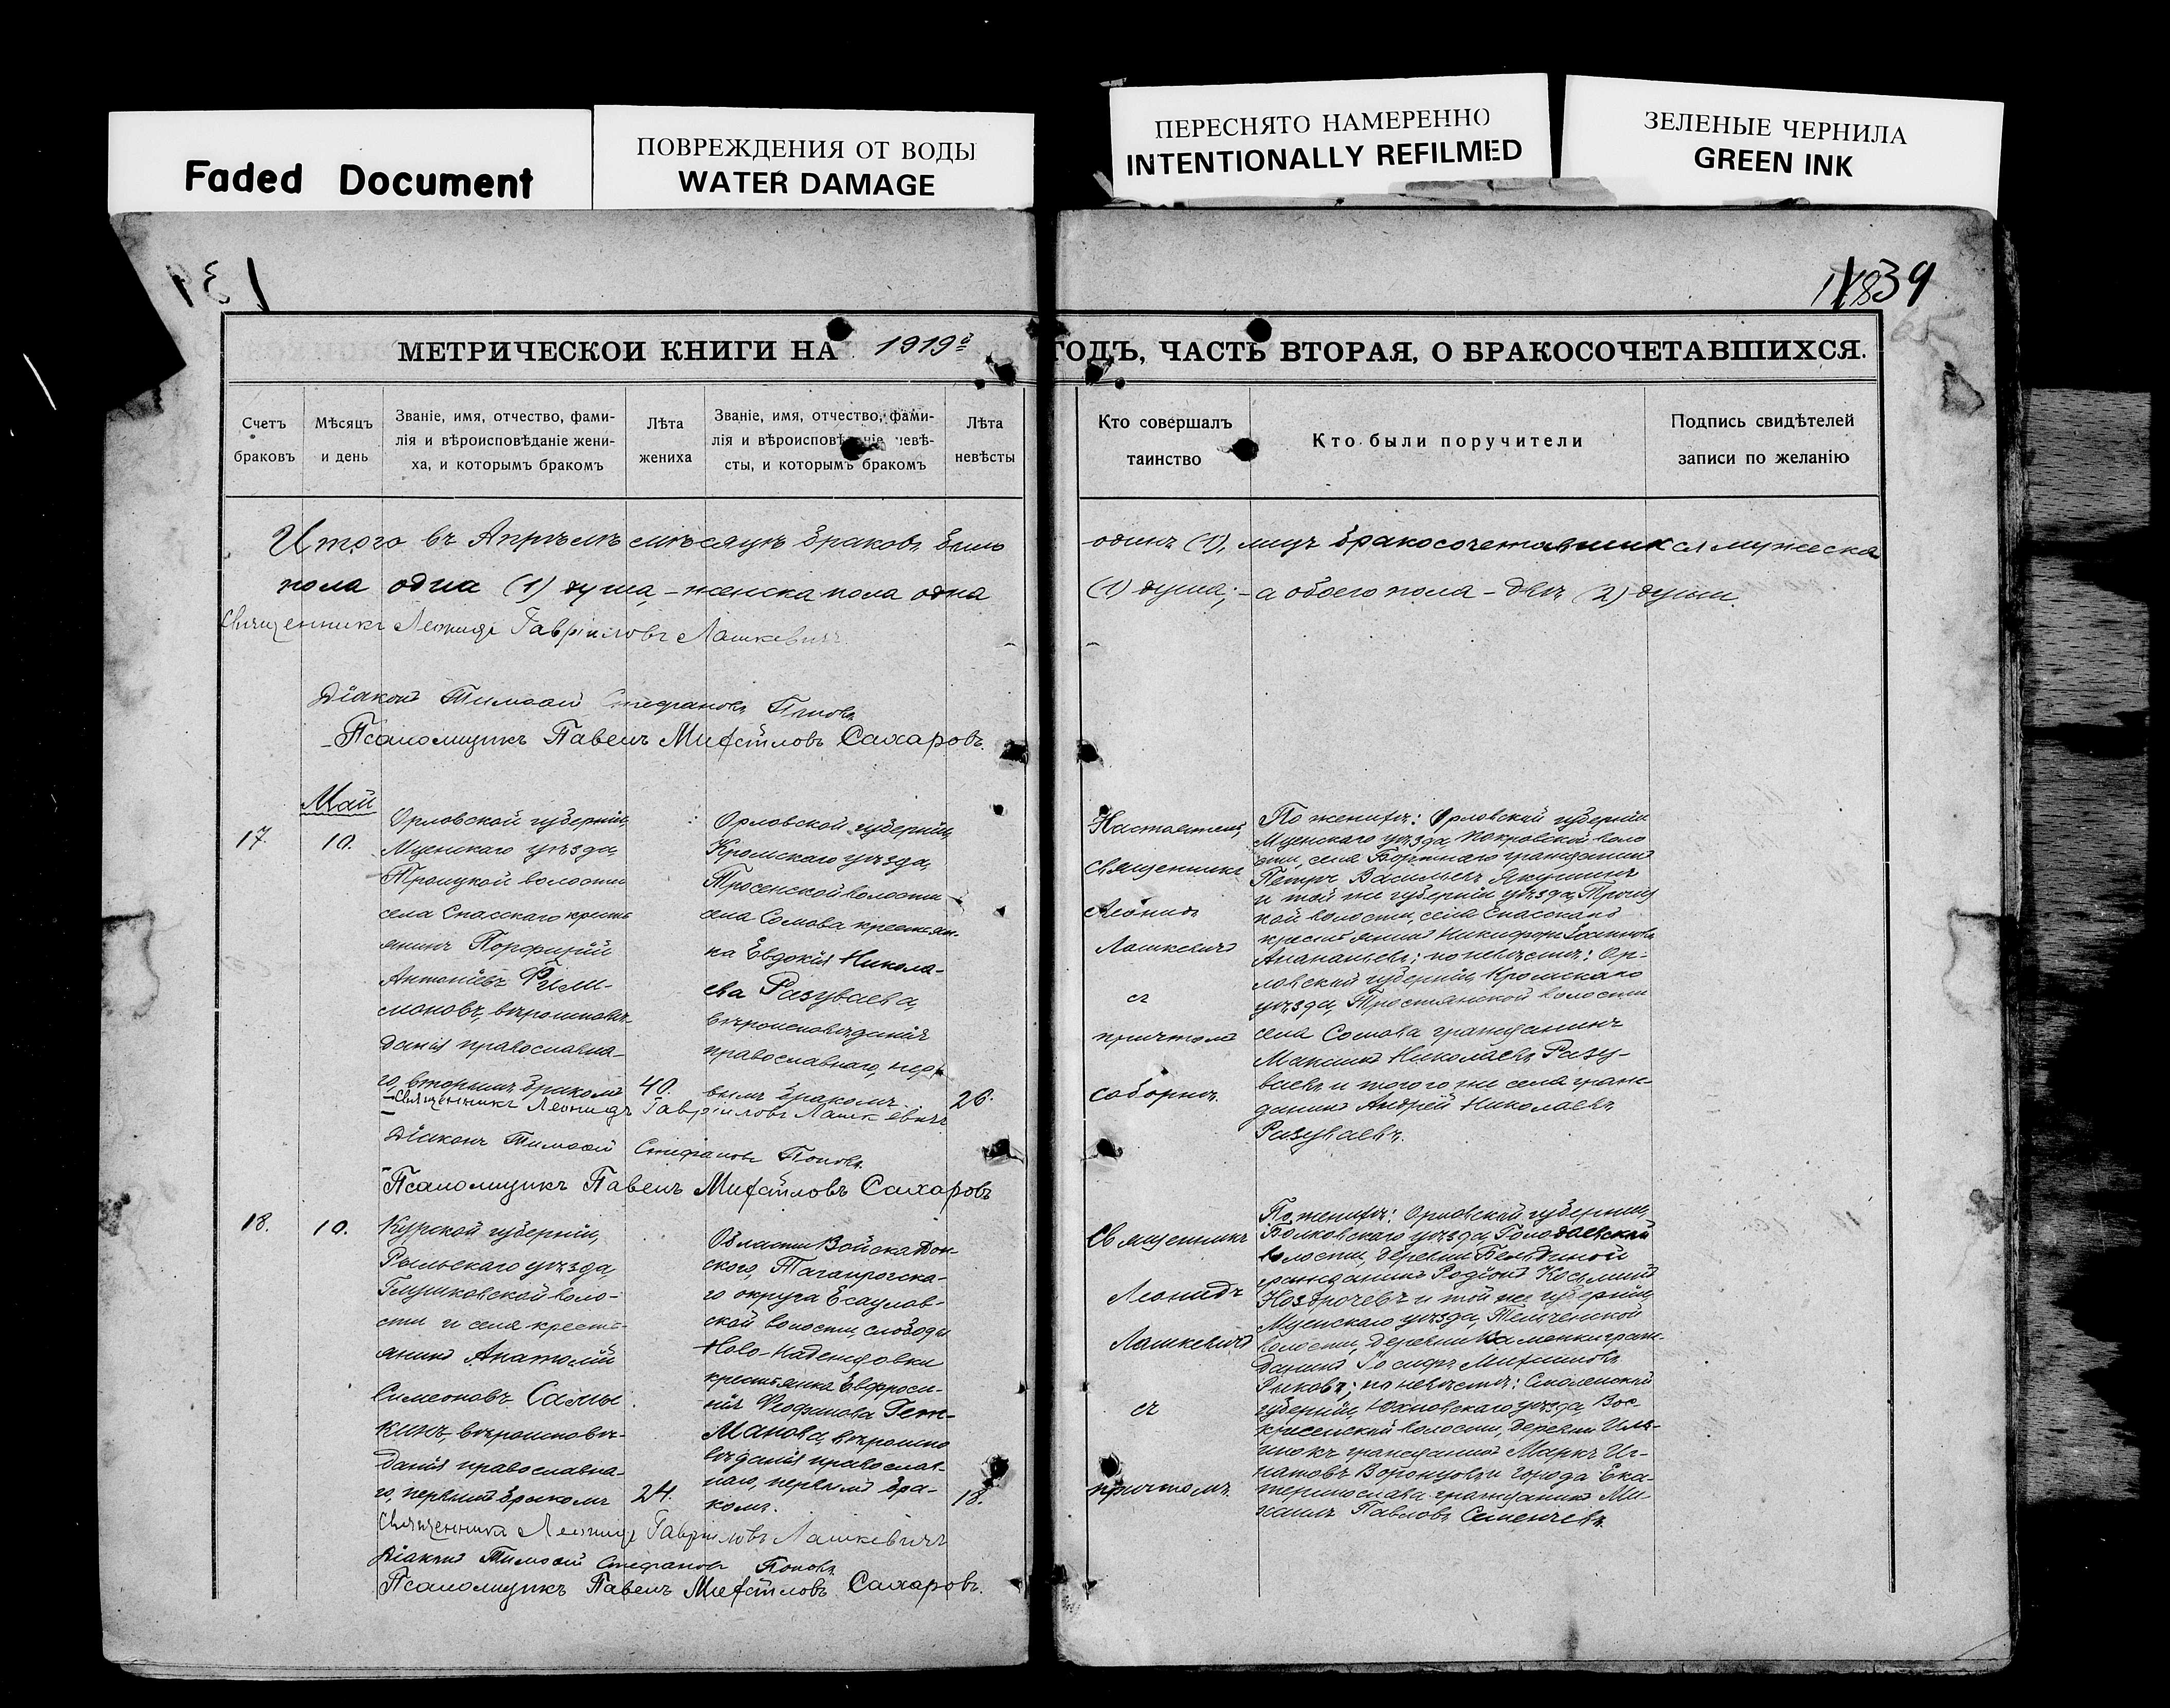 ПОВРЕЖДЕНИЯ ОТ ВОДЫ
Faded Document
WATER DAMAGE
ПЕРЕСНЯТО НАМЕРЕННО
INTENTIONALLY REFILMED
ЗЕЛЕНЫЕ ЧЕРНИЛА
GREEN INK
39
МЕТРИЧЕСКОЙ КНИГИ НА 1919г
ГОДЪ, ЧАСТЬ ВТОРАЯ, О БРАКОСОЧЕТАВШИХСЯ.
Счетъ
браковъ
Мѣсяцъ
и день
Званіе, имя, отчество, фами-
лія и вѣроисповѣданіе жени-
ха, и которымъ бракомъ
Лѣта
жениха
Званіе, имя, отчество, фами-
лія и вѣроисповѣданіе невѣ-
сты, и которымъ бракомъ
Лѣта
невѣсты
Кто совершалъ
таинство
Кто были поручители
Подпись свидѣтелей
записи по желанію
Итого въ Апрѣлѣ мѣсяцѣ браковъ было
одинъ (1), лицъ бракосочетавшихся мужеска
пола одна (1) душа, – женска пола одна
(1) душа; – а обоего пола – двѣ (2) души.
Священникъ Леонидъ Гавріиловъ Лашкевичъ
Діаконъ Тимоѳей Стефановъ Поповъ
Псаломщикъ Павелъ Сахаровъ.
Май
17.
10.
Орловской губерніи,
Мценскаго уѣзда,
Троицкой волости
села Спасскаго кресть
янинъ Порфирій
Антоніевъ Фили-
моновъ, вѣроисповѣ-
данія православна-
го, вторымъ бракомъ
40.
Орловской губерніи,
Кромскаго уѣзда,
Тросенской волости
села Сомова крестьян-
ка Евдокія Никола-
ева Разуваева,
вѣроисповѣданія
православнаго, пер-
вымъ бракомъ.
26.
Настоятель,
священникъ
Леонидъ
Лашкевичъ
съ
причтомъ
соборнѣ.
По женихѣ: Орловской губерніи
Мценскаго уѣзда, Покровской воло
сти, села гражданинъ
Петръ Васильевъ Якушинъ
и той же губерніи уѣзда, Троиц
кой волости, села Спасскаго
крестьянинъ Никифоръ
Ананьевъ; по невѣстѣ: Ор-
ловской губерніи, Кромскаго
уѣзда, волости
села Сомова гражданинъ
Максимъ Николаевъ Разу-
ваевъ и того же села граж-
данинъ Андрей Николаевъ
Разуваевъ.
Священникъ Леонидъ Гавріиловъ Лашкевичъ
Діаконъ Тимоѳей Стефановъ Поповъ
Псаломщикъ Павелъ Сахаровъ
18.
10.
Курской губерніи,
Рыльскаго уѣзда,
Глушковской воло-
сти и села кресть-
янинъ Анатолій
Симеоновъ
кинъ, вѣроисповѣ-
данія православна-
го, первымъ бракомъ
24.
Области Войска Дон-
ского, Таганрогска-
го округа Есаулов-
ской волости, слободы
Ново-Надеждовки
крестьянка Евфроси-
нія Гет-
манова, вѣроиспо
вѣданія православ-
наго, первымъ бра-
комъ.
18.
Священникъ
Леонидъ
Лашкевичъ
съ
причтомъ.
По женихѣ: Орловской губерніи,
Болховскаго уѣзда,
волости, деревни
гражданинъ Родіонъ Косьминъ
Ноздрочевъ и той же губерніи,
Мценскаго уѣзда, Тельченской
волости, деревни Каменки граж-
данинъ
Рыковъ; по невѣстѣ: Смоленской
губерніи, Юхновскаго уѣзда, Вос
кресенской волости, деревни
гражданинъ Маркъ Иг-
натовъ Воронцовъ и города Ека-
теринослава гражданинъ Ми-
хаилъ Павловъ
Священникъ Леонидъ Гавріиловъ Лашкевичъ
Діаконъ Тимоѳей Стефановъ Поповъ
Псаломщикъ Павелъ Сахаровъ.